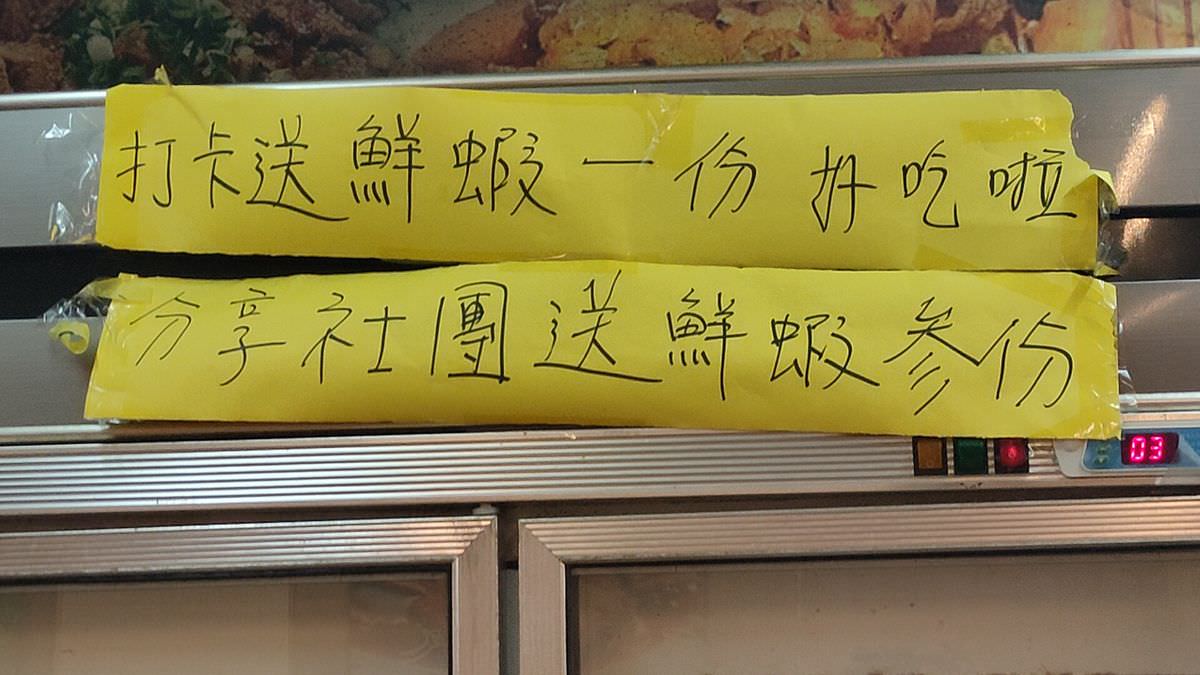 打卡送鮮蝦一份 好吃啦
分享社團送鮮蝦参份
03